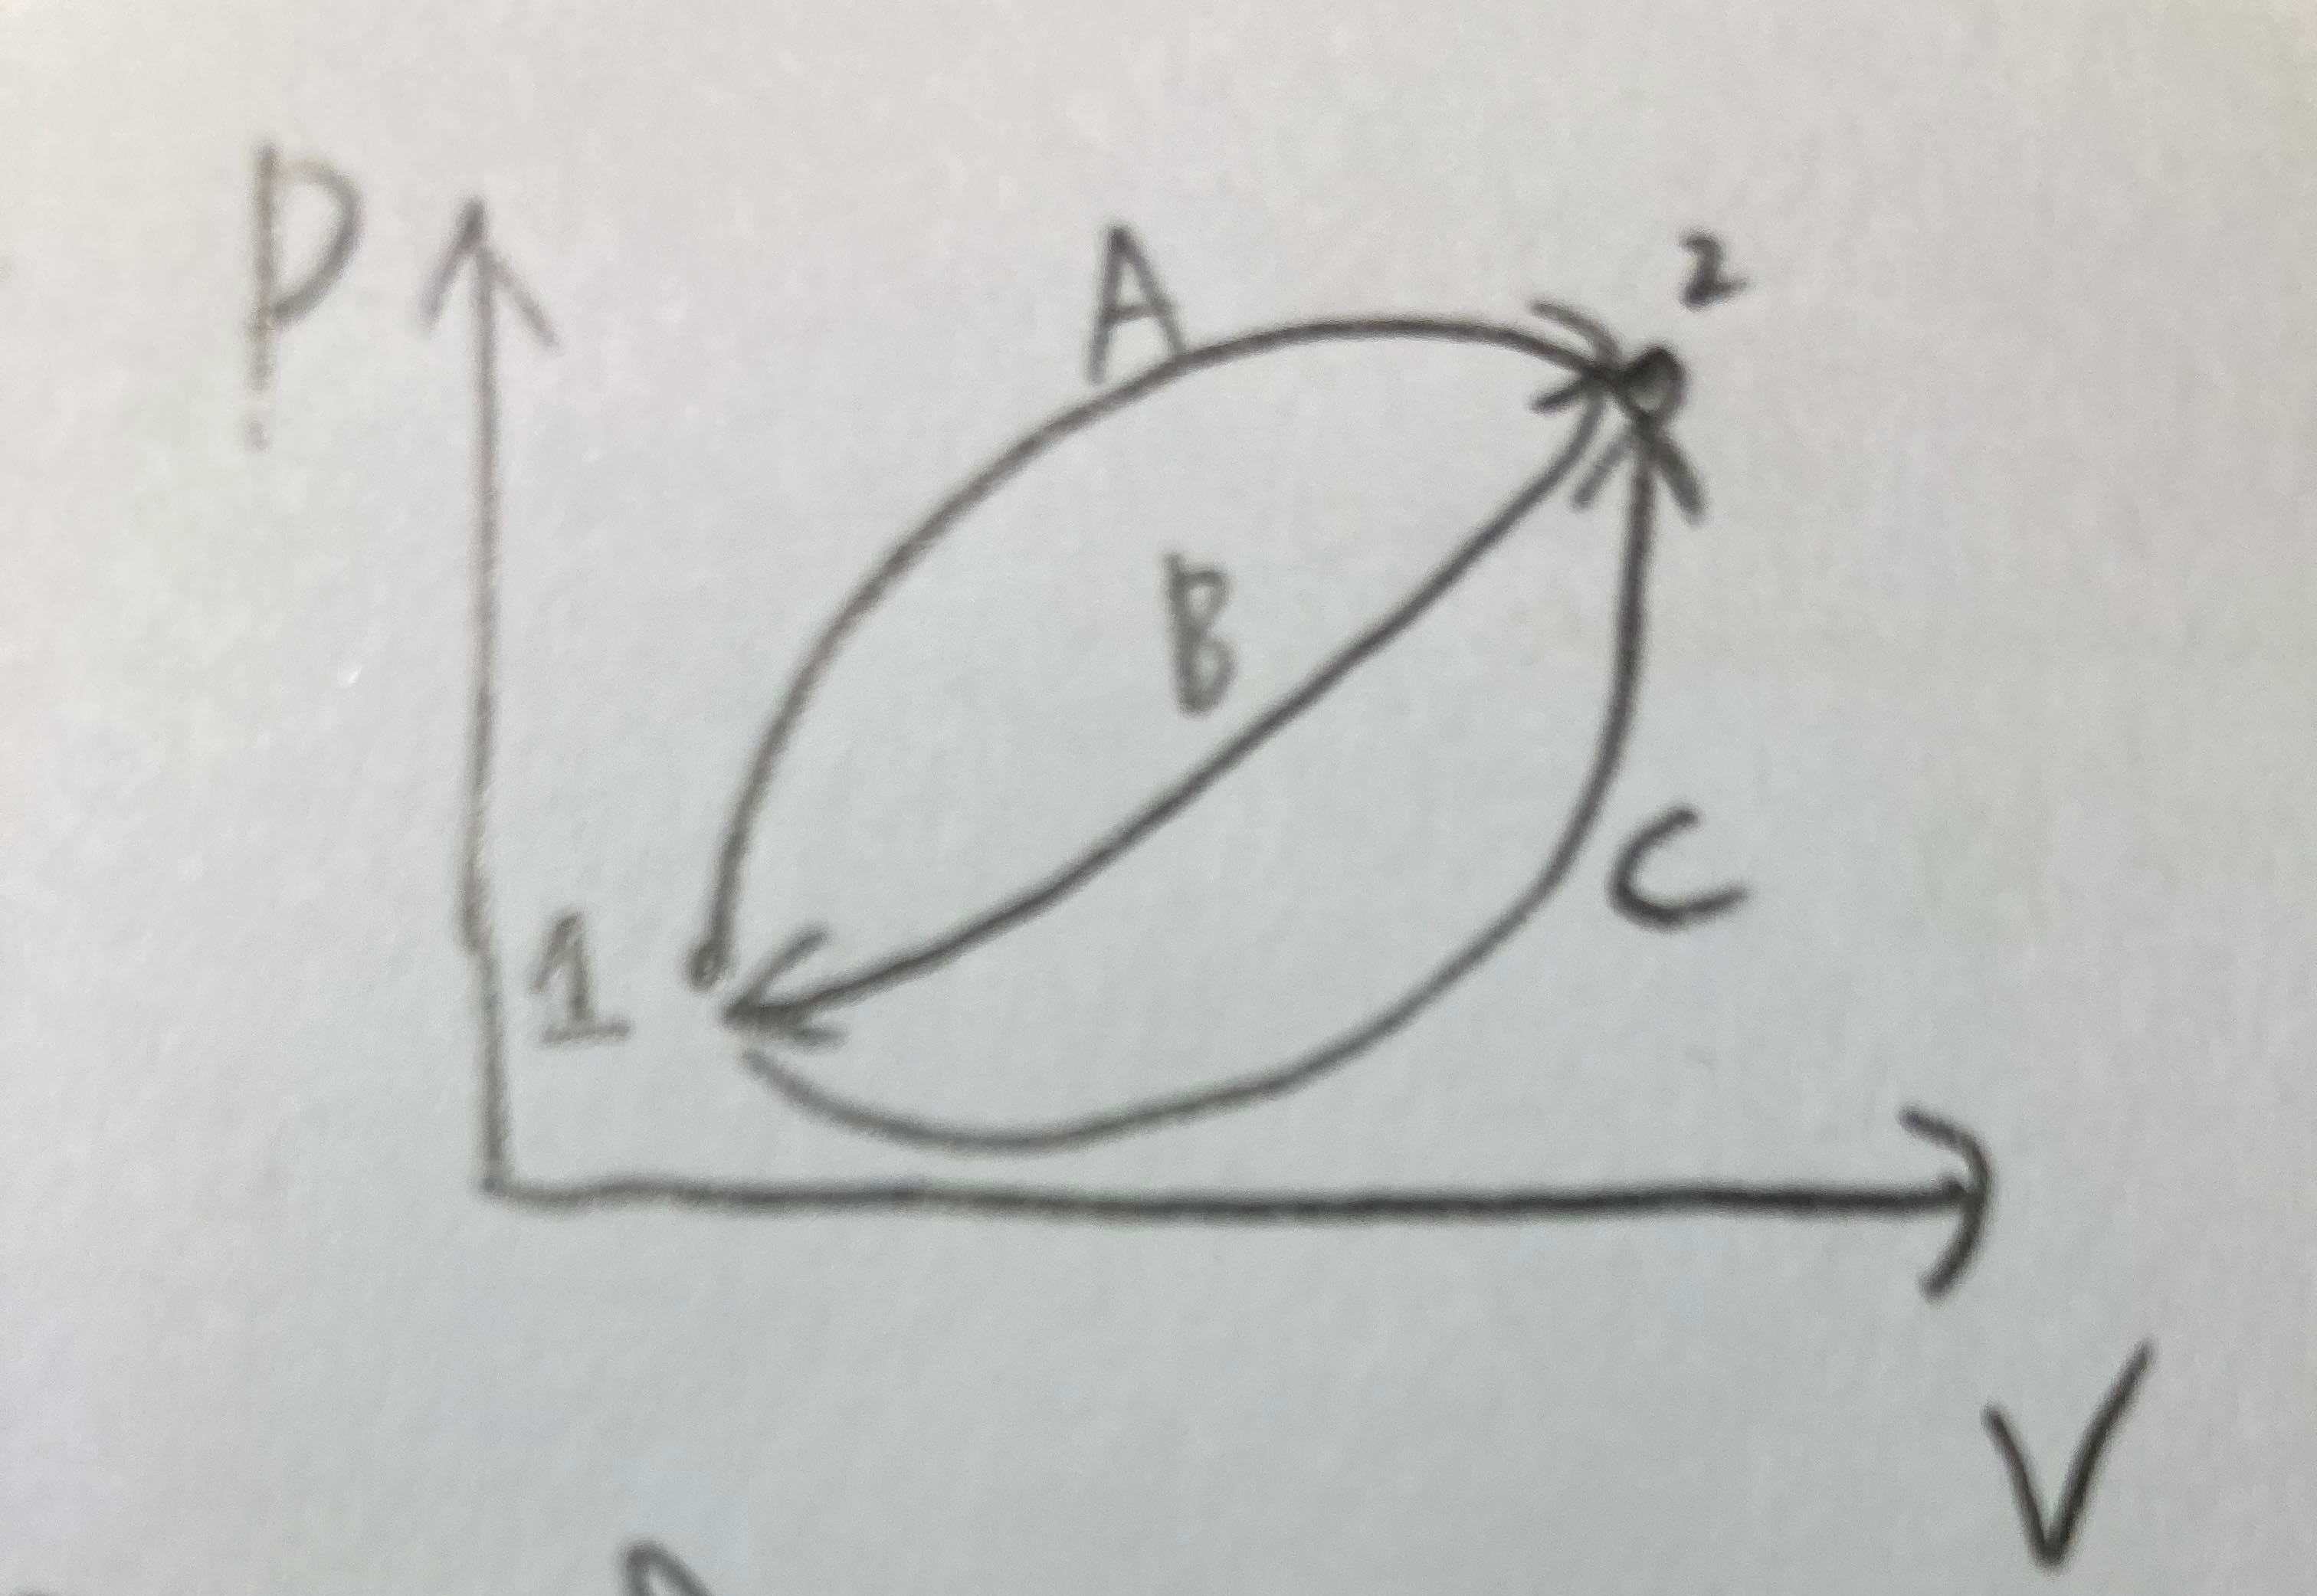 P
A
2
B
C
1
V